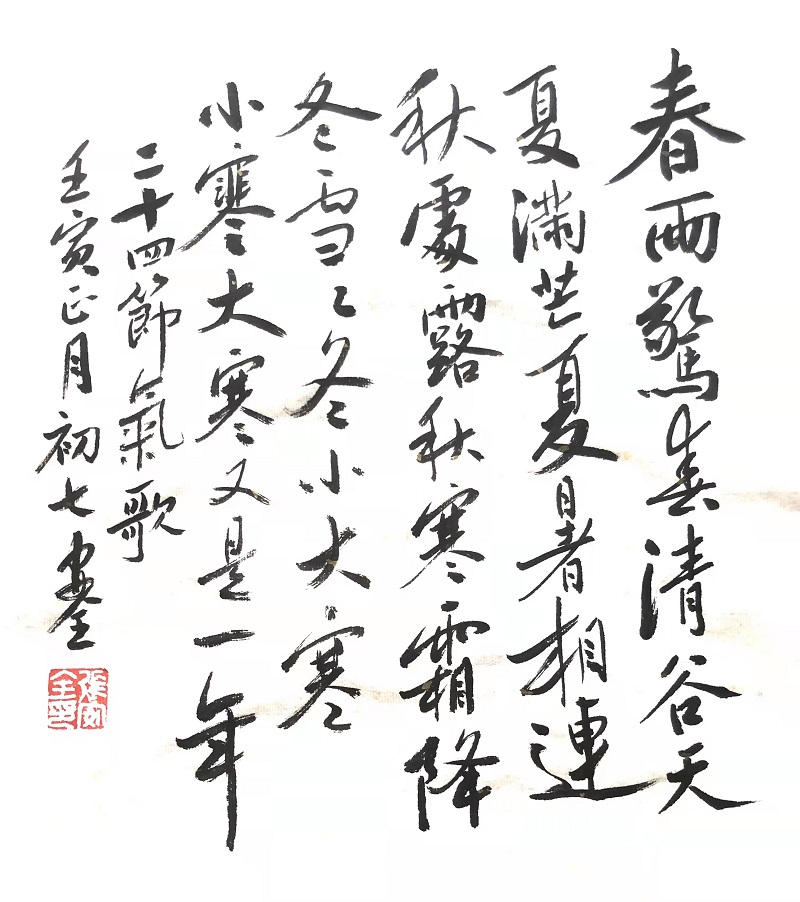 春雨驚春清谷天
夏滿芒夏暑相連
秋處露秋寒霜降
冬雪〻冬小大寒
小寒大寒又是一年
二十四節氣歌
壬寅正月初七安全
張安全印